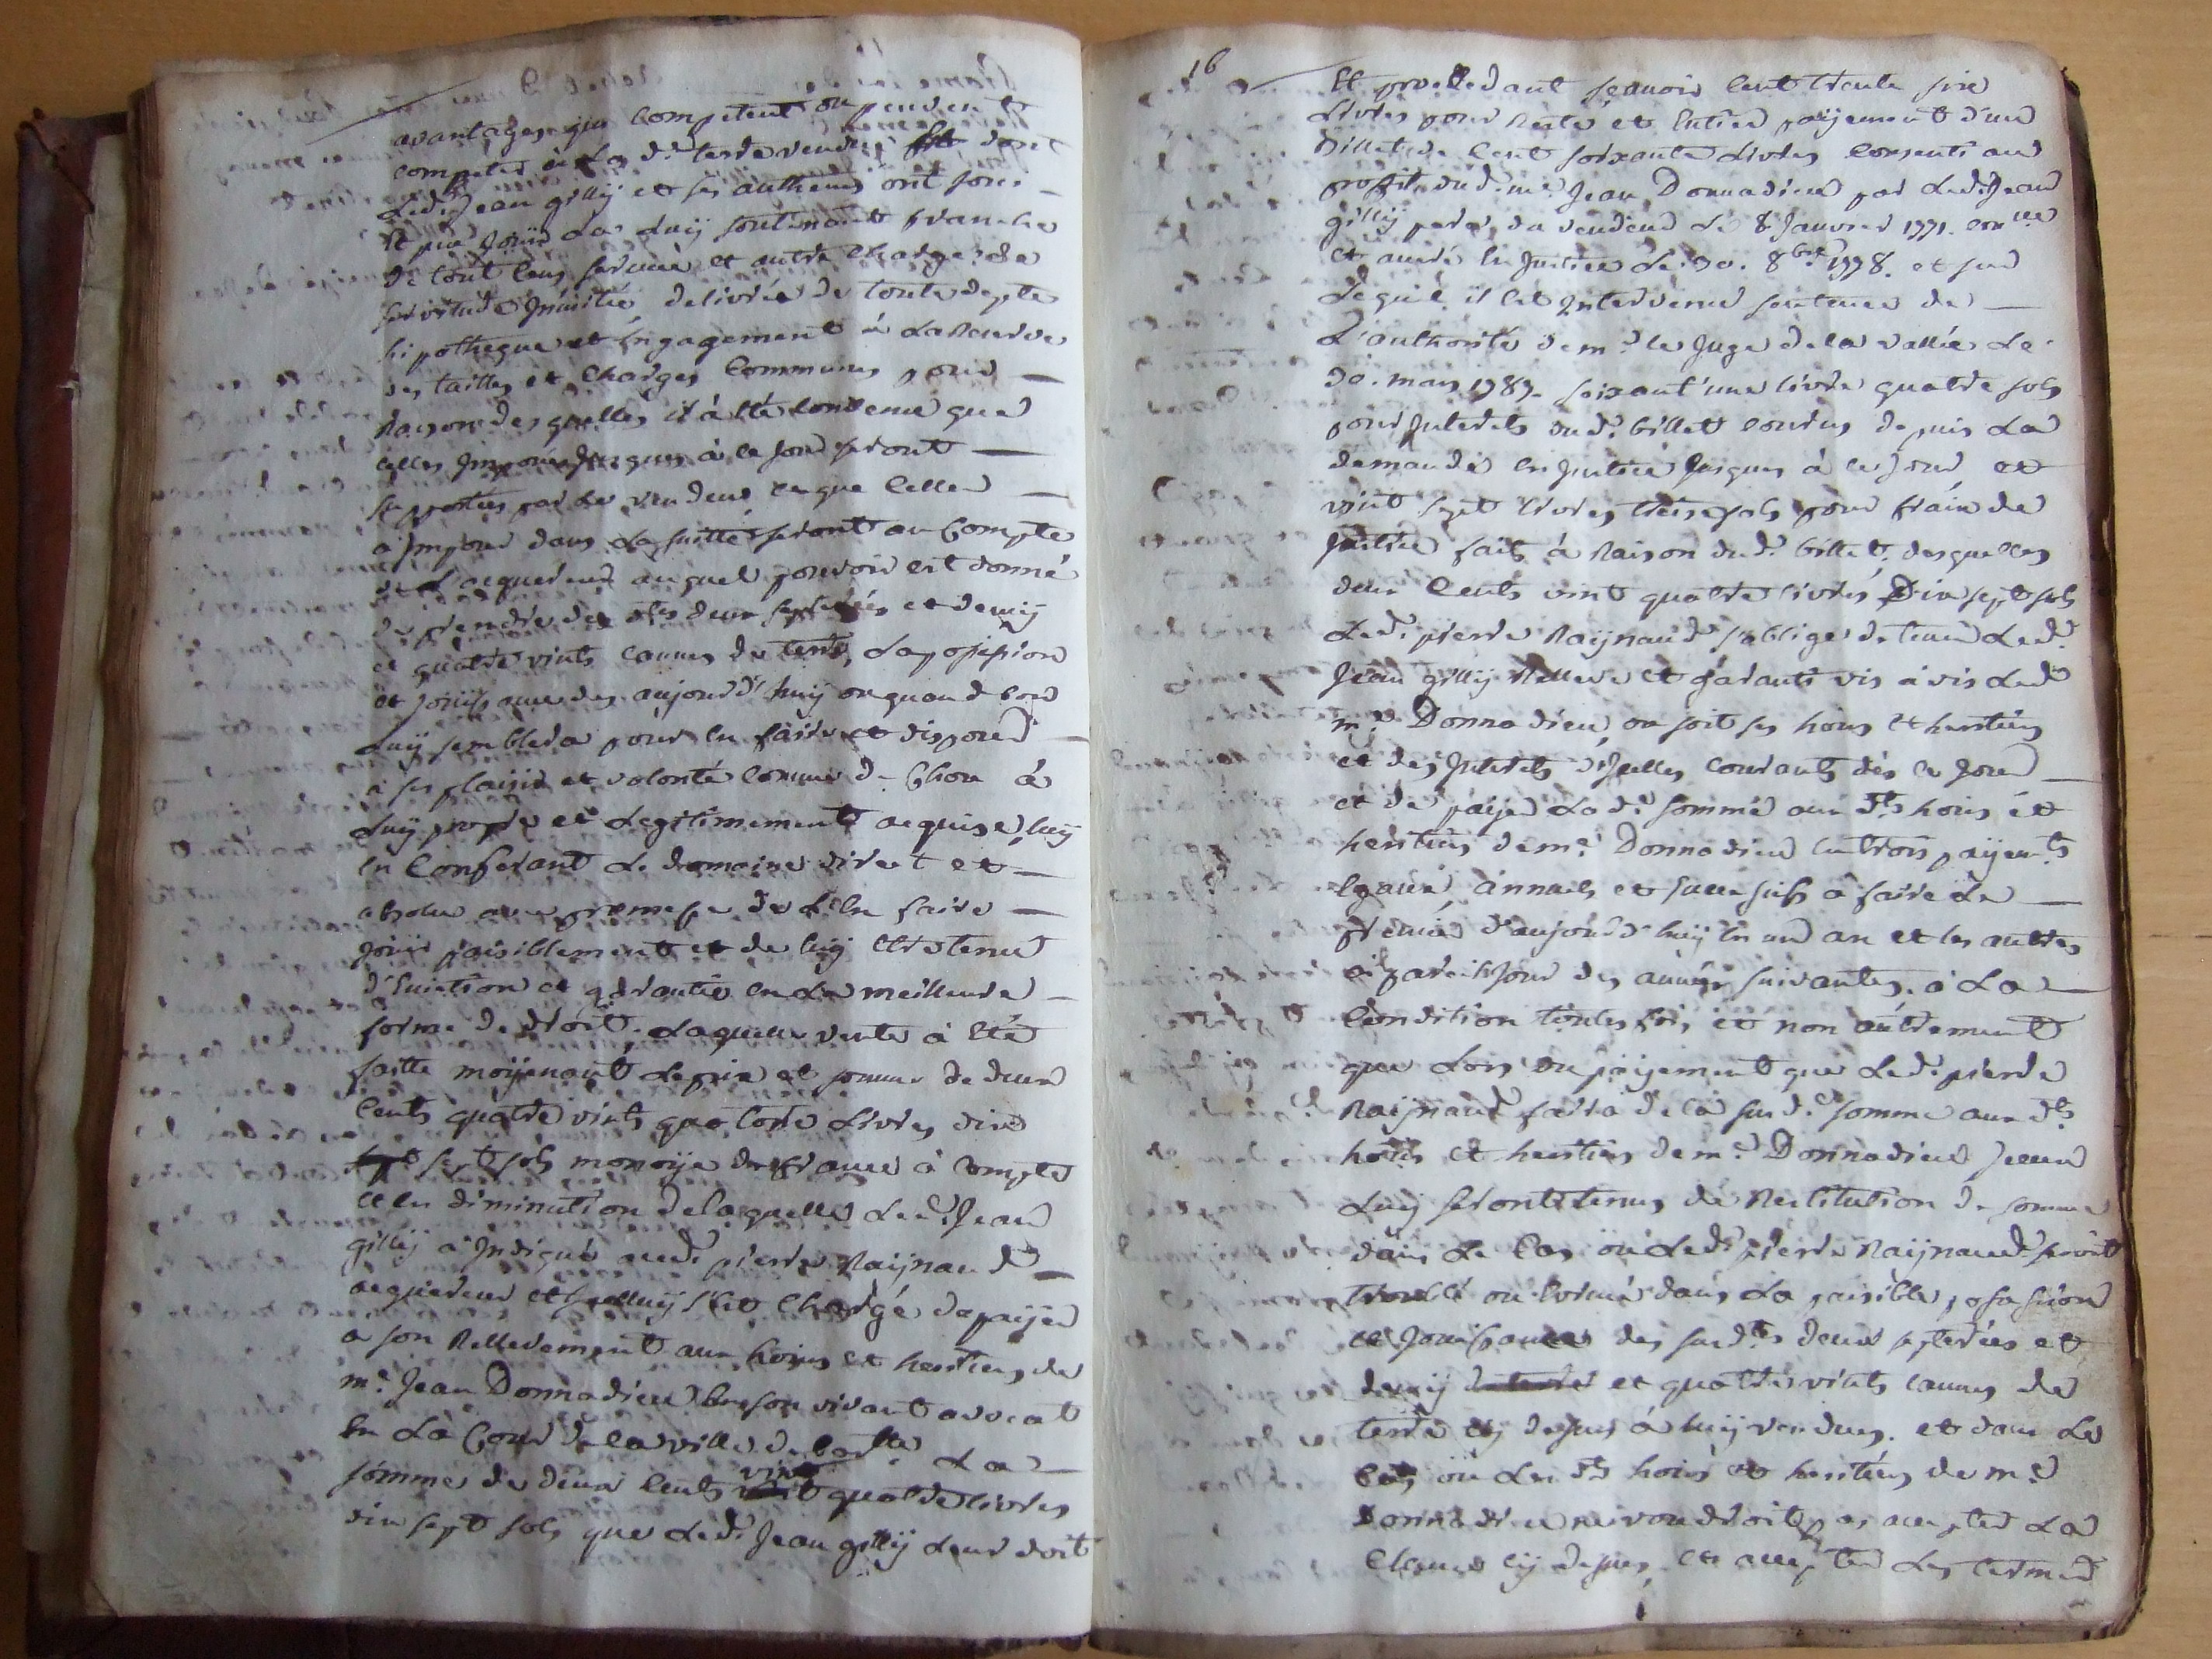 avantages qui Competent ou peuvent
competer à la d.e terre vendue dont
Led. Jean gilly et ses autheurs ont joui
et peu jouir La luy soutenant franche
de tout Cens, service et autre Charge de
servitude Inusitée, delivrée de toute depte
hipotheque et Engagement à La Reserve
des tailles et Charges Communes pour
Raison desquelles il à été Convenu que
Celles Imposées Jusques à ce Jour seront
supportées par Le vendeur et que Celles
à Imposer dans La suitte seront au Compte
de L'acquereur auquel pouvoir est donné
de prendre des d.tes deux septerées et demij
et quatre vints cannes de terre, La possession
et jouissance des aujourd'huij ou quand bon
Luij semblera pour En faire et disposer
à ses plaisir et volonté Comme de Chose à
Luij propre et Legitimement acquise, luij
En Conferant Le domaine direct et
absolu avec promesse de L'En faire
jouir paisiblement et de luij Etre tenu
d'Eviction et garantie en La meilleure
forme de droit, Laquelle vente à Eté
faitte moijenant Le prix et somme de deux
Cents quatre vints quatorze Livres dix
sept sols monoije de france à Compte
et En diminution de laquelle Led. Jean
gillij à Indiqué aud. pierre Raijnaud
acquereur et Icelluij s'est Chargé de paijer
a son Rellevement aux hoirs et heritiers de
m.e Jean Donnadieu En son vivant avocat
En La Cour de la ville de La
somme de deux Cents vint quatre livres
dix sept sols que Led. Jean gillij Leur doit
16
Et procedant sçavoir Cent trente six
Livres pour Reste et Entier paijement d'un
Billet de Cent soixante Livres Consenti au
proffit dud. me Jean Donnadieu par Led. Jean
gillij pere du vendeur Le 8 Janvier 1771. con.lle
et averé En Justice Le 30. 8bre 1778. et sur
Lequel il Est Intervenu sentence de
L'authorité de m.r le Juge de la vallée Le
30. mars 1789. soixant'une livre quatre sols
pour Interets dud. billet Courus depuis La
demande En Justice Jusques à ce Jour et
vint sept livres treize sols pour frais de
Justice faits à Raison dud. billet. desquelles
deux Cents vint quatre livres Dix sept sols
Led. pierre Raijnaud s'obblige de tenir Led.
Jean gillij Relleve et garanti vis à vis Led.
m.e Donnadieu, ou soit ses hoirs et heritiers
et des Interets d'Icelles Courants dès ce Jour
et de paijer La d.e somme aux d.ts hoirs et
heritiers de m.e Donnadieu En trois paijem.ts
Egaux, annuels et successifs à faire Le
premier d'aujourd'huij En un an et les autres
à pareil Jour des années suivantes. à La
Condition toutes fois et non autrement
que Lors du paijement que Led. pierre
Raijnaud faira de la susd.e somme aux d.ts
hoirs et heritiers de m.e Donnadieu Iceux
Luij seront tenus de Restitution de somme
dans Le Cas ou Led. pierre Raijnaud seroit
troublé ou Evincé dans La paisible possession
et Jouissance des susd.tes deux septerées et
demij et quatre vints cannes de
terre Cij dessus à luij vendues. et dans Le
Cas ou Les d.ts hoirs et heritiers de m.e
Donnadieu ne voudroit pas accepter La
Clause Cij dessus, et accepter Les termes